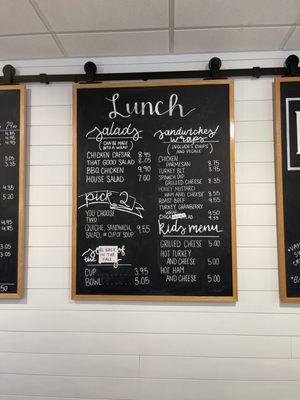 Lunch
Salads
(CAN BE MADE
INTO A WRAP)
CHICKEN CAESAR 8.95
THAT GOOD SALAD 8.05
BBQ CHICKEN 9.90
HOUSE SALAD 7.00
pick 2
YOU CHOOSE TWO
QUICHE, SANDWICH, 9.55
SALAD, OR CUP OF SOUP
BE BACK
IN THE
FALL
CUP 3.95
BOWL 5.05
Sandwiches/
Wraps
(INCLUDES CHIPS
AND PICKLE)
CHICKEN
PARMESAN 8.75
TURKEY BLT 8.50
SPINACH DIP
GRILLED CHEESE 8.35
HONEY MUSTARD
HAM AND CHEESE 8.55
ROAST BEEF 9.55
TURKEY CRANBERRY
9.50
SALAD 9.55
kids menu
GRILLED CHEESE 5.00
HOT TURKEY
AND CHEESE 5.00
HOT HAM
AND CHEESE 5.00